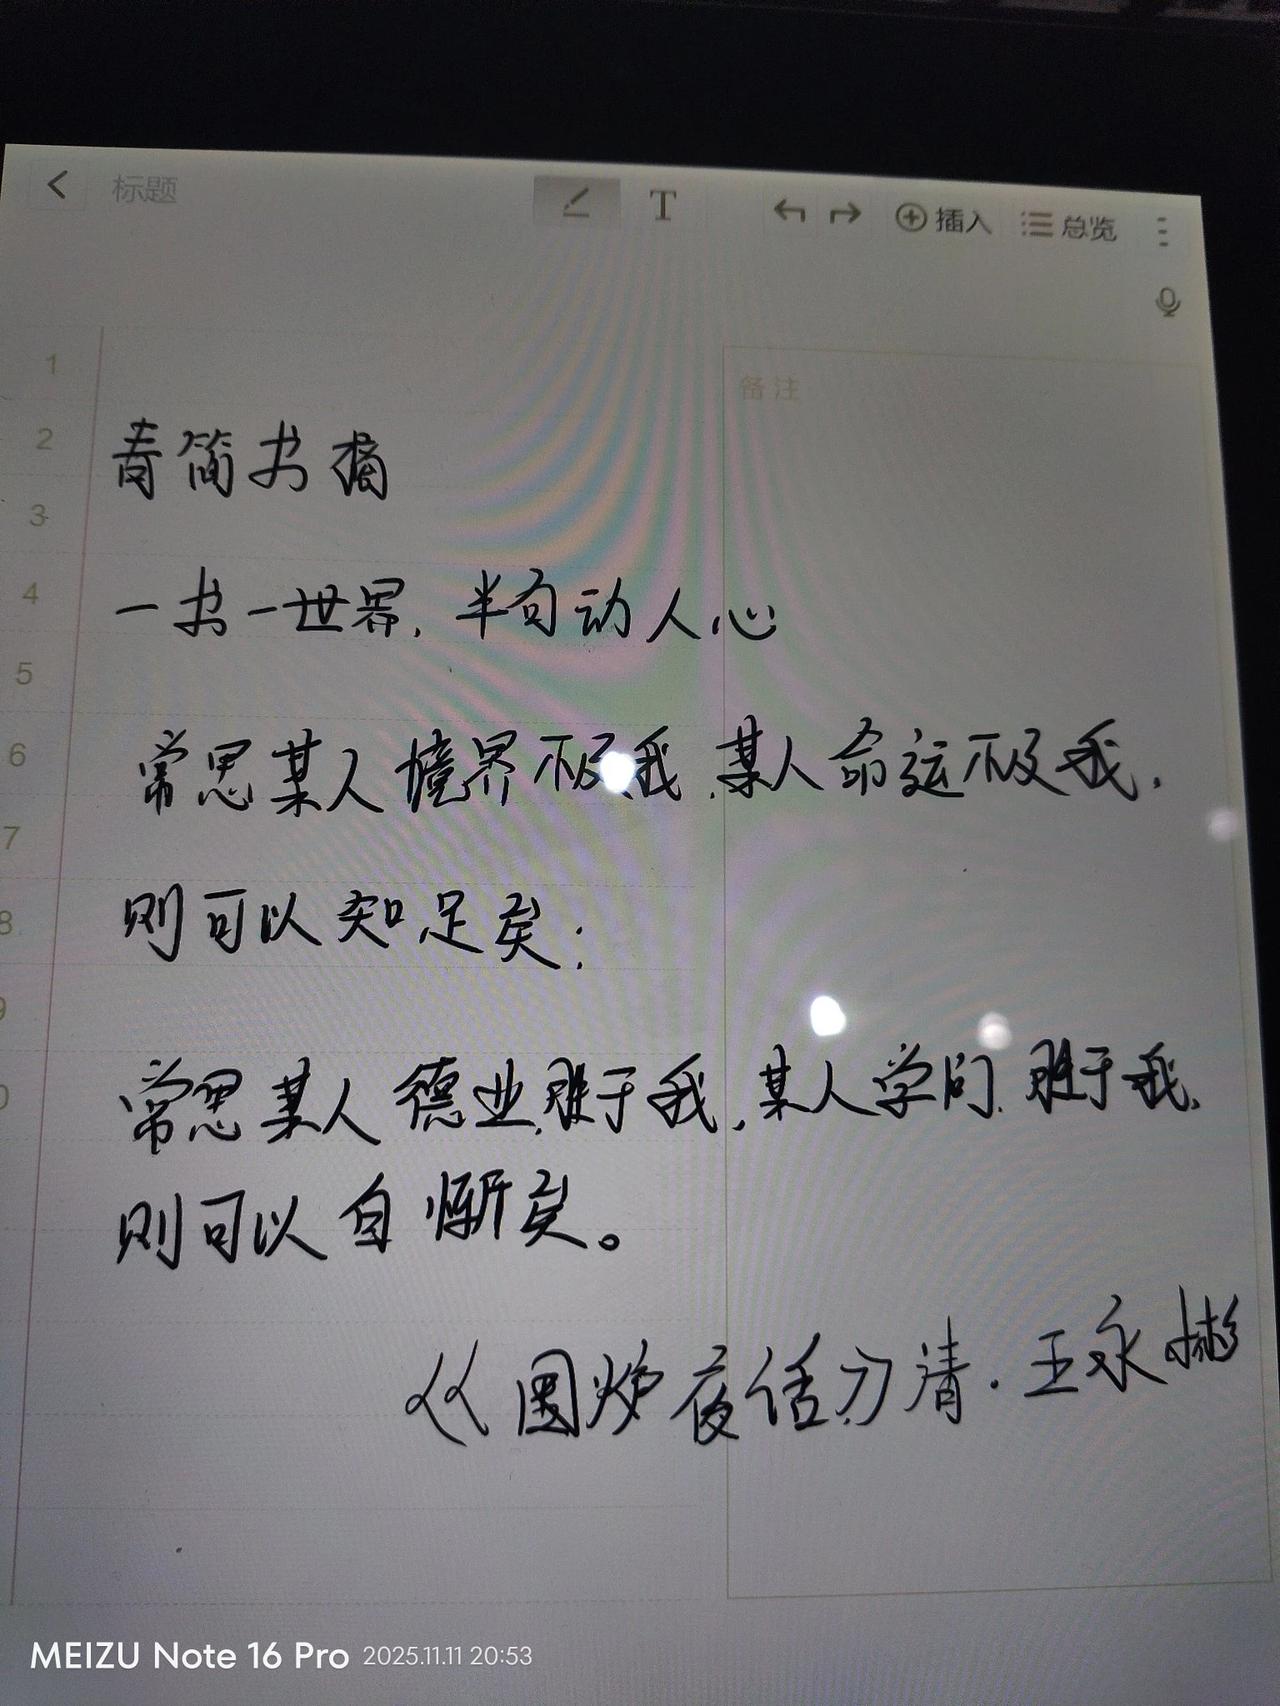 标题 T 插入 总览
备注
1
2
3
4
5
6
7
8
9
0
青简书摘
一书一世界，半句动人心
常思某人境界不及我，某人命运不及我，
则可以知足矣；
常思某人德业胜于我，某人学问胜于我，
则可以自惭矣。
《围炉夜话》清·王永彬
MEIZU Note 16 Pro 2025.11.11 20:53